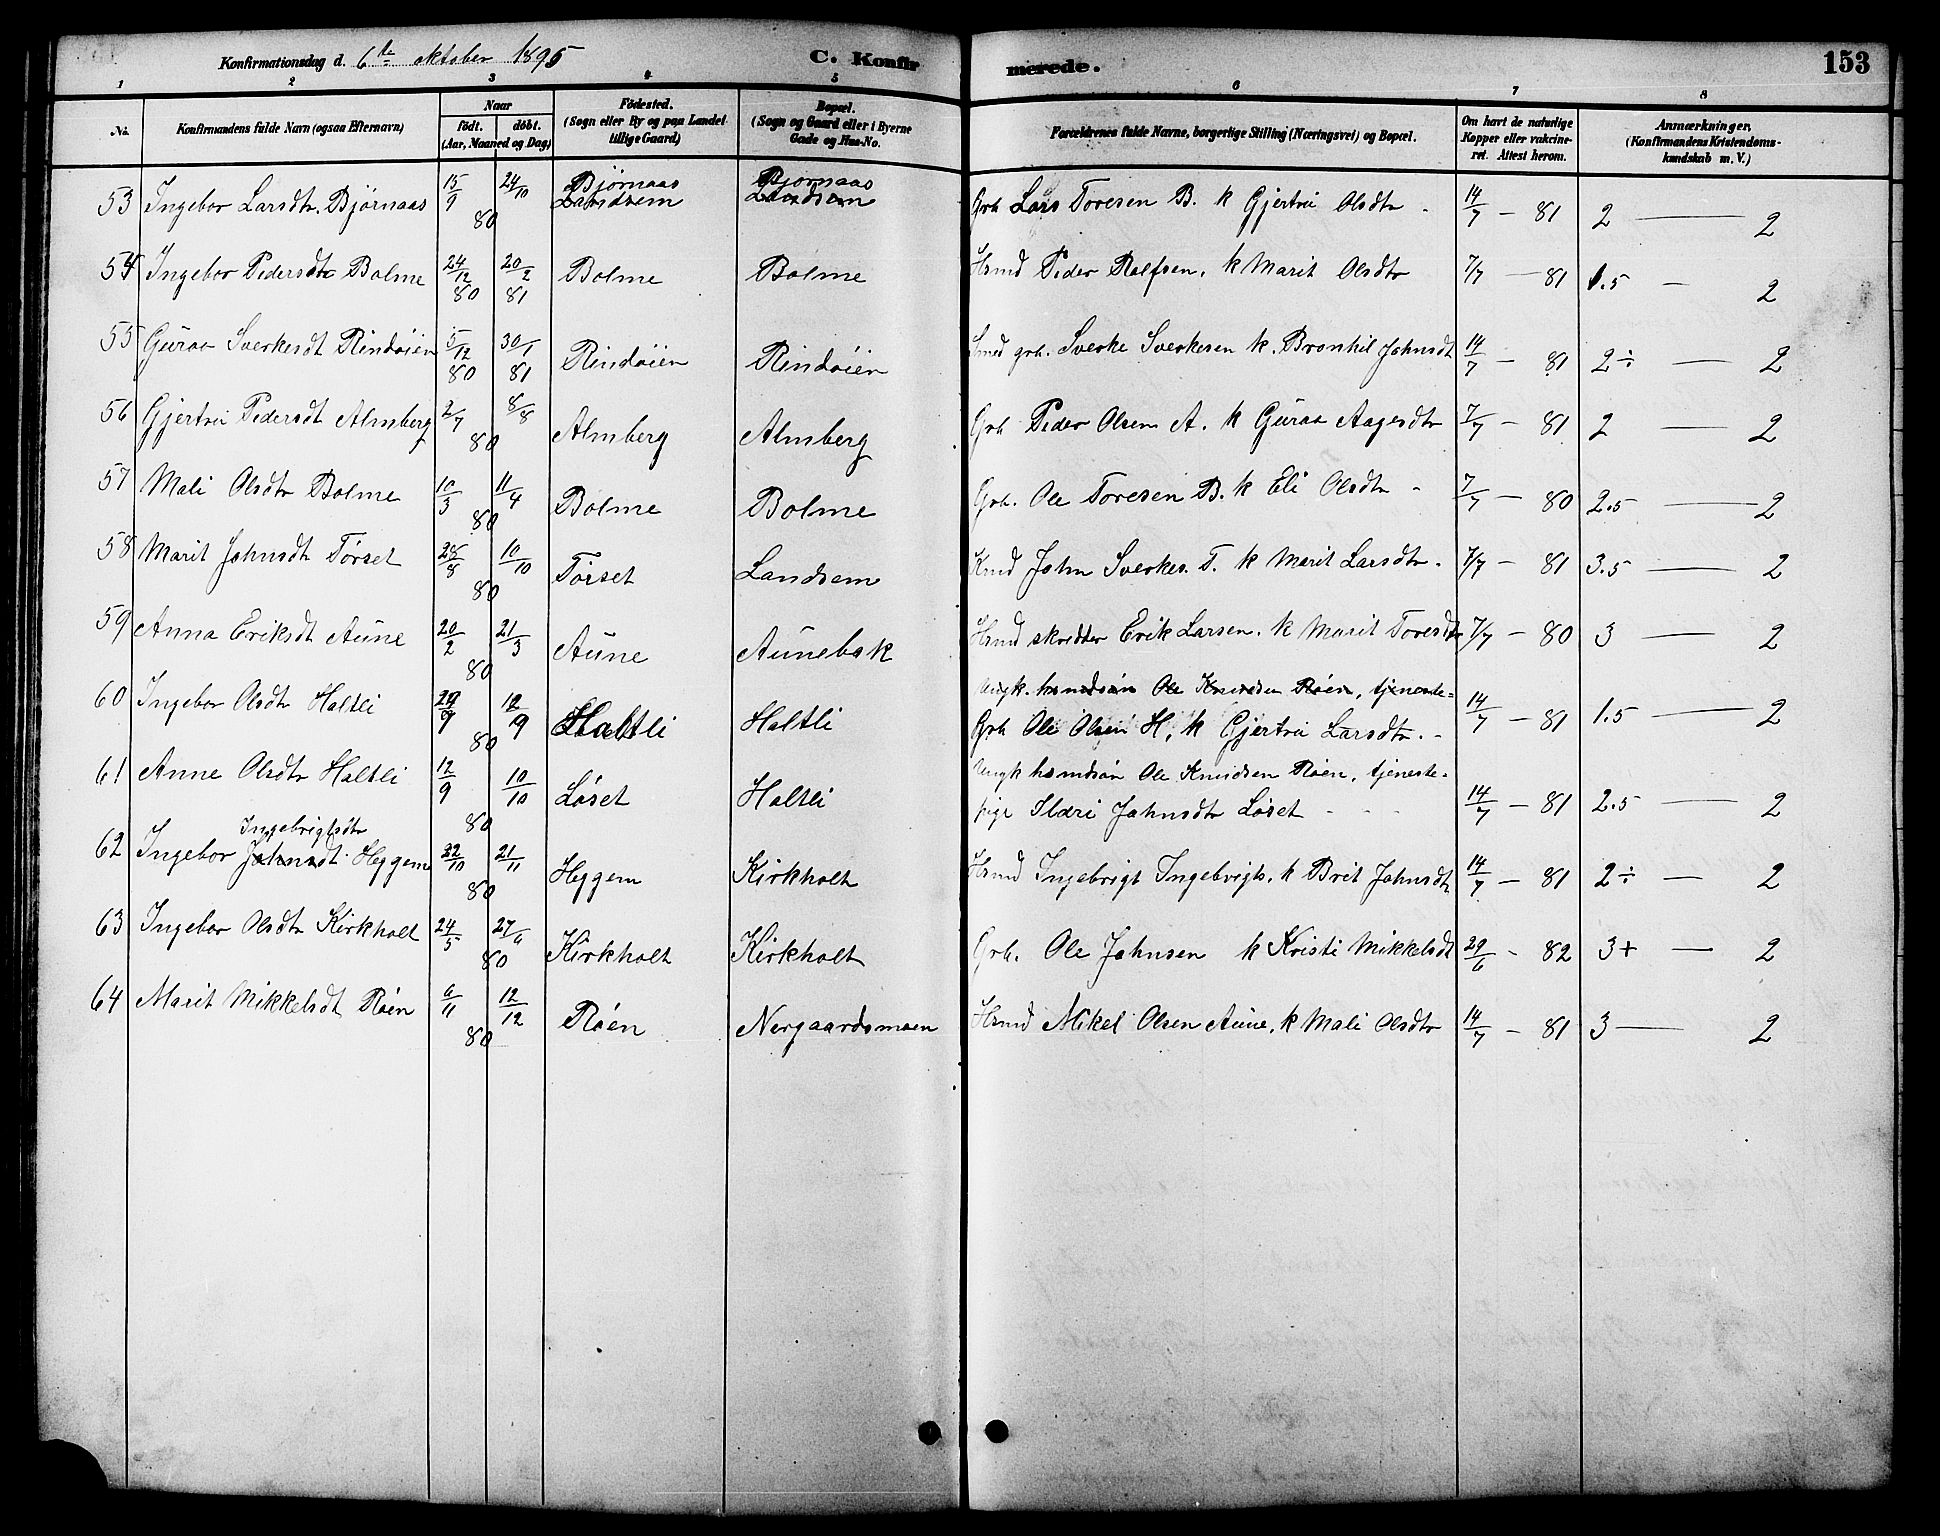 Konfirmationsdag d. 6te oktober 1895
C. Konfir
merede.
153
1 2 3 4 5 6 7 8
No.
Konfirmandens fulde Navn (ogsaa Efternavn)
Naar
födt. döbt.
(Aar, Maaned og Dag)
Födested.
(Sogn eller By og paa Landet
tillige Gaard)
Bopæl.
(Sogn og Gaard eller i Byerne
Gade og Hus-No.
Forældrenes fulde Navne, borgerlige Stilling (Næringsvei) og Bopæl.
Om havt de naturlige
Kopper eller vakcine-
ret. Attest herom.
Anmærkninger,
(Konfirmandens Kristendoms-
kundskab m. V.)
53 Ingebor Larsdtr. Bjørnaas 15/9 80 24/10 Bjørnaas Landsem Bjørnaas Landsem Grb Lars Toresen B. k Gjertru Olsdtr - 14/7 - 81 2 — 2
54 Ingebor Pedersdtr Bolme 24/12 80 20/2 81 Bolme Bolme Hsmd Peder Rolfsen. k Marit Olsdtr 7/7 - 81 1.5 — 2
55 Guraa Sverkesdt Rindøien 5/12 80 30/1 81 Rindøien Rindøien Smed grb. Sverke Sverkesen k. Bronhil Johnsdt 14/7 - 81 2÷ — 2
56 Gjertru Pedersdt Almberg 2/7 80 8/8 Almberg Almberg Grb Peder Olsen A. k Guraa Aagesdtr 7/7 - 81 2 — 2
57 Mali Olsdtr Bolme 10/3 80 11/4 Bolme Bolme Grb. Ole Toresen B. k Eli Olsdtr - 7/7 - 80 2.5 — 2
58 Marit Johnsdt Tørset 28/8 80 10/10 Tørset Landsem Kmd John Sverkes. T. k Marit Larsdtr. 7/7 - 81 3.5 — 2
59 Anna Eriksdt Aune 20/2 80 21/3 Aune Aunebak Hsmd skredder Erik Larsen. k Marit Toresdtr 7/7 - 80 3 — 2
60 Ingebor Olsdtr Haltli 29/9 80 12/9 Haltli Haltli Ungk. husmdsøn Ole Knudsen Røen, tjeneste-
Grb Ole Olsen H, k Gjertru Larsdtr. - 14/7 - 81 1.5 — 2
61 Anne Olsdtr Haltli 12/9 80 10/10 Løset Haltli Ungk husmdsøn Ole Knudsen Røen, tjeneste-
pige Ildri Johnsdtr Løset - - - 14/7 - 81 2.5 — 2
Ingebrigtsdtr
62 Ingebor Johnsdt. Heggem 22/10 80 21/11 Heggem Kirkholt Hsmd Ingebrigt Ingebrigts. k Brit Johnsdt 14/7 - 81 2÷ — 2
63 Ingebor Olsdtr Kirkholt 24/5 80 27/6 Kirkholt Kirkholt Grb. Ole Johnsen k Kristi Mikkelsdt 29/6 - 82 3+ — 2
64 Marit Mikkelsdt Røen 6/11 80 12/12 Røen Nergaardsmoen Hsmd Mikel Olsen Aune, k Mali Olsdtr 14/7 - 81 3 — 2